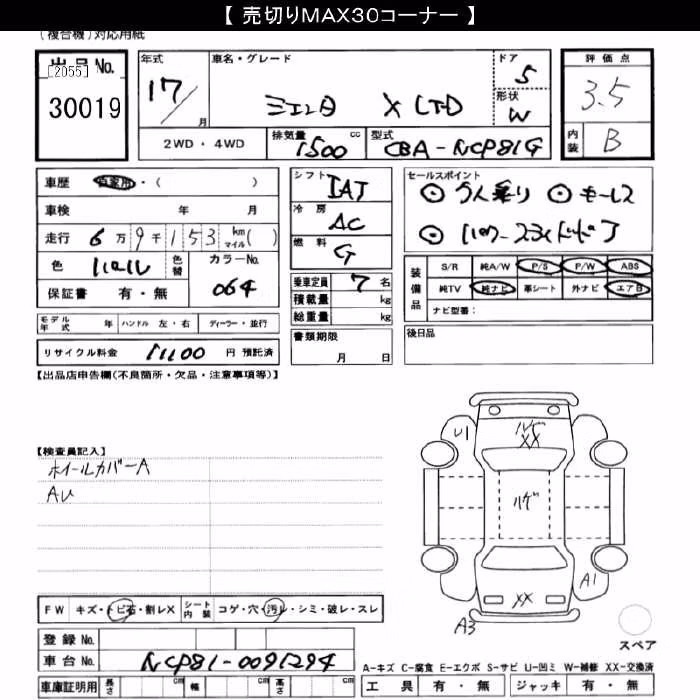 【 売切りMAX30コーナー 】
(複合機)対応用紙
出品No.
[2055]
30019
年式
17/
月
車名・グレード
シエンタ X LTD
ドア
5
形状
W
2WD ・ 4WD
排気量
1500
cc
型式
CBA-NCP81G
評価点
3.5
内装
B
車歴
自家用・( )
車検 年 月
走行 6万9千153 km マイル( )
色 パール
色替
カラーNo.
064
保証書 有・無
シフト
IAT
冷房
AC
燃料
G
乗車定員 7 名
積載量 kg
総重量 kg
書類期限
月 日
セールスポイント
◎ 7人乗り ◎ モーレス
◎ パワースライドドア
装備品
S/R 純A/W P/S P/W ABS
純TV 純ナビ 革シート 外ナビ エアB
ナビ型番:
後日品
モデル年式 年 ハンドル 左・右 ディーラー・並行
リサイクル料金 11100 円 預託済
【出品店申告欄(不良箇所・欠品・注意事項等)】
【検査員記入】
ホイールカバーA
AU
U1
ハゲ
XX
ハゲ
XX
A1
A3
スペア
FW キズ・トビ石・割レX
シート内装 コゲ・穴・汚レ・シミ・破レ・スレ
登録 No.
車台 No. NCP81-0091294
車庫証明用 長さ cm 幅 cm 高さ cm
A-キズ C-腐食 E-エクボ S-サビ U-凹ミ W-補修 XX-交換済
工具 有・無 ジャッキ 有・無